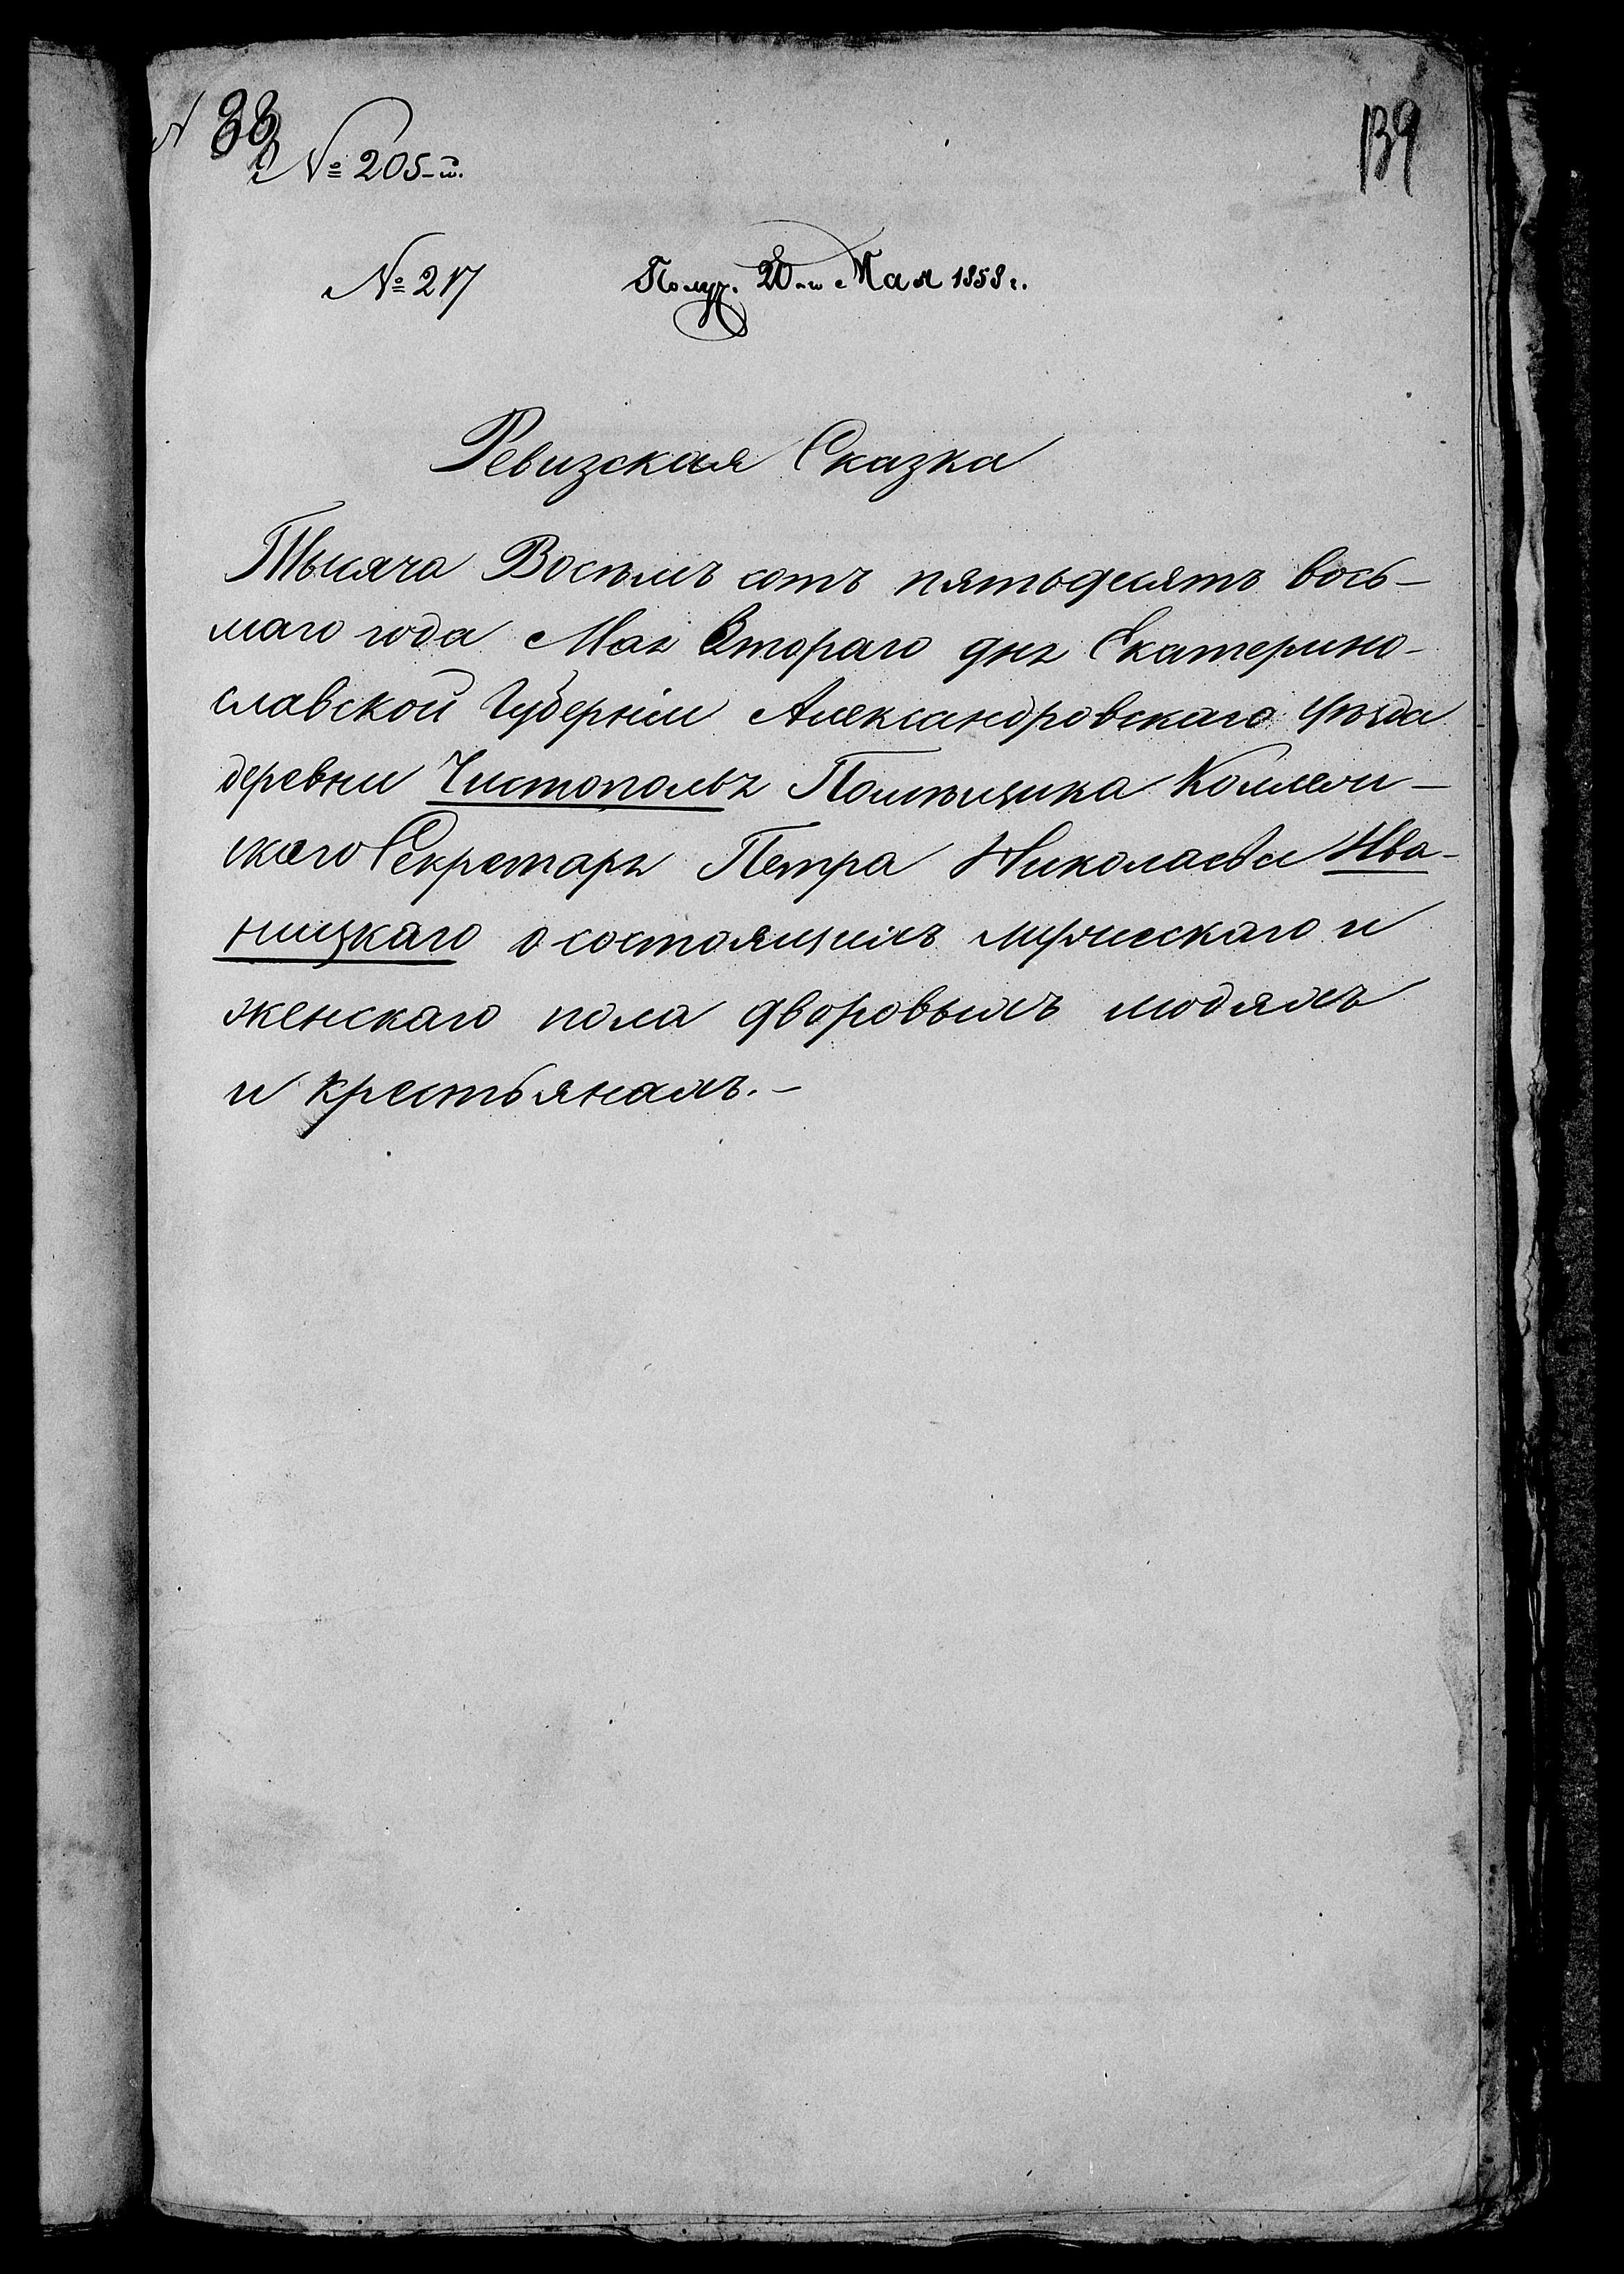 N 88
№ 205-й.
139
№ 217
Получ. 20-го Мая 1858 г.
Ревизская Сказка
Тысяча Восемь сотъ пятьдесятъ вось-
маго года Мая Втораго дня Екатерино-
славской Губерніи Александровскаго Уѣзда
деревни Чистополья Помѣщика Коллеж-
скаго Секретаря Петра Николаева Ива-
ницкаго о состоящихъ мужескаго и
женскаго пола дворовымъ людямъ
и крестьянамъ.-